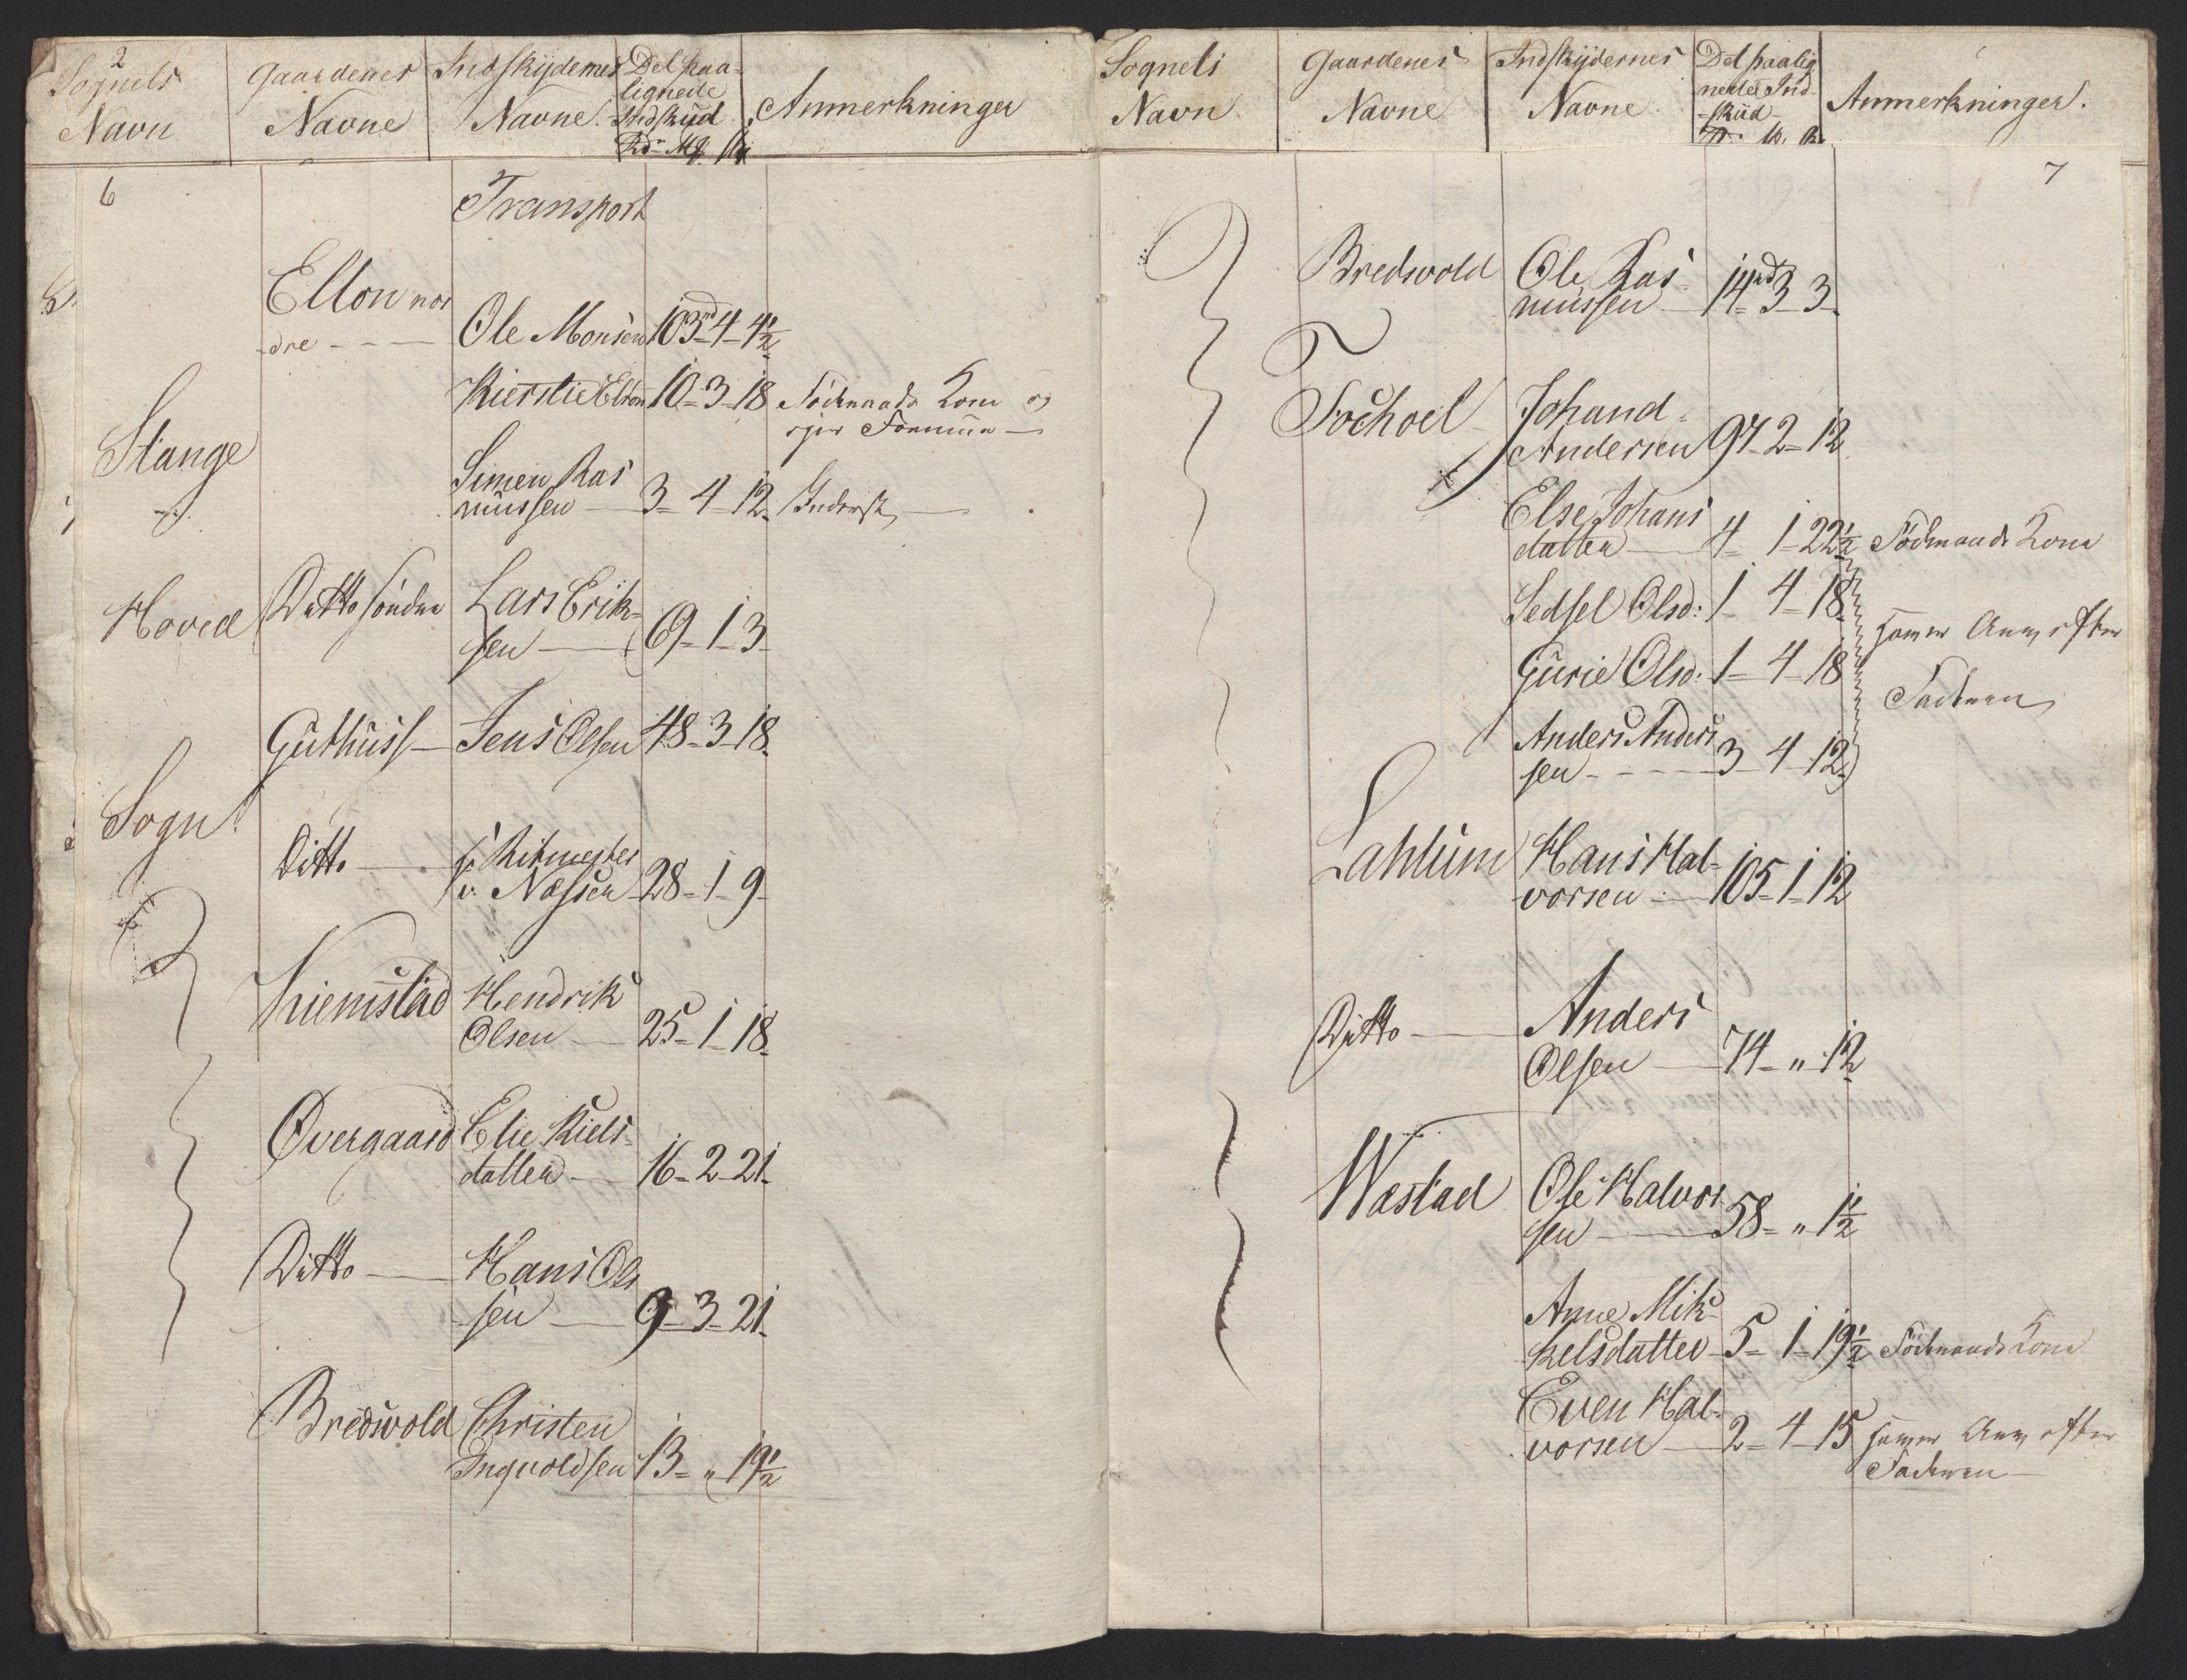 2
Sognets Navn
Gaardenes Navne
Indskydernes Navne
Det paalignede Indskud
Rd. Mk. sk
Anmerkninger
6
Transport
Stange
Hoved
Sogn
Ellon nordre - - - Ole Monsen 103rd-4-4½
Kierstie Elton 10-3-18 Födemands Kone og
ejer Formue
Simen Rasmussen 3-4-12 Inderst
Ditto söndre Lars Eriksen 69-1-3
Guthuss Jens Olsen 48-3-18
Ditto Hr Ritmester v. Næsser 28-1-9
Kiemstad Hendrik Olsen 25-1-18
Øvergaard Elie Kielsdatter 16-2-21
Ditto Hans Olssen 9-3-21
Bredswold Christen Ingvoldsen 13-"-19½
Sognets Navn
Gaardenes Navne
Indskydernes Navne
Det paalignede Indskud
Anmerkninger.
7
Bredswold Ole Rasmussen 14rd-3-3
Fochoel Johand Andersen 97-2-12
Else Johansdatter 4-1-22½ Födemands Kone
Sedsel Olsd: 1-4-18
Gurie Olsd: 1-4-18
Anders Anderssen 3-4-12
Lahlum Hans Halvorsen 105-1-12
Ditto Anders Olsen 74-"-12
Wæstad Ole Halvorsen 58-"-1½
Anne Mikkelsdatter 5-1-19½ Födemands Kone
Even Halvorsen 2-4-15